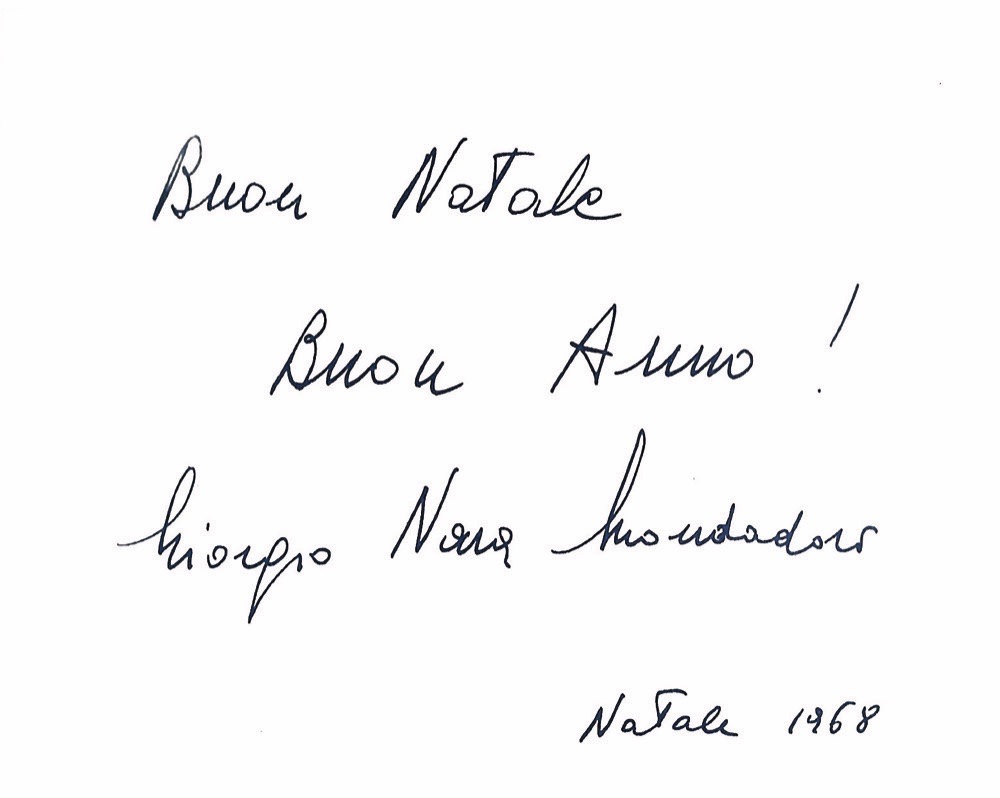 Buon Natale
Buon Anno!
Giorgio Nara Mondadori
Natale 1968